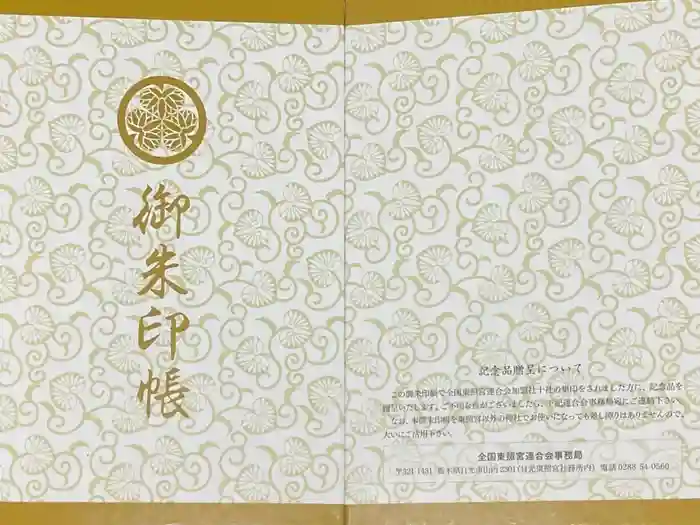 御朱印帳
記念品贈呈について
この御朱印帳で全国東照宮連合会加盟社十社の集印をされました方に、記念品を
贈呈いたします。ご不明な点がございましたら、下記連合会事務局宛にご連絡下さい。
なお、本御朱印帳を東照宮以外の神社でお使いになっても差し障りはありませんので、
大いにご活用下さい。
全国東照宮連合会事務局
〒321-1431 栃木県日光市山内2301(日光東照宮社務所内) 電話 0288-54-0560